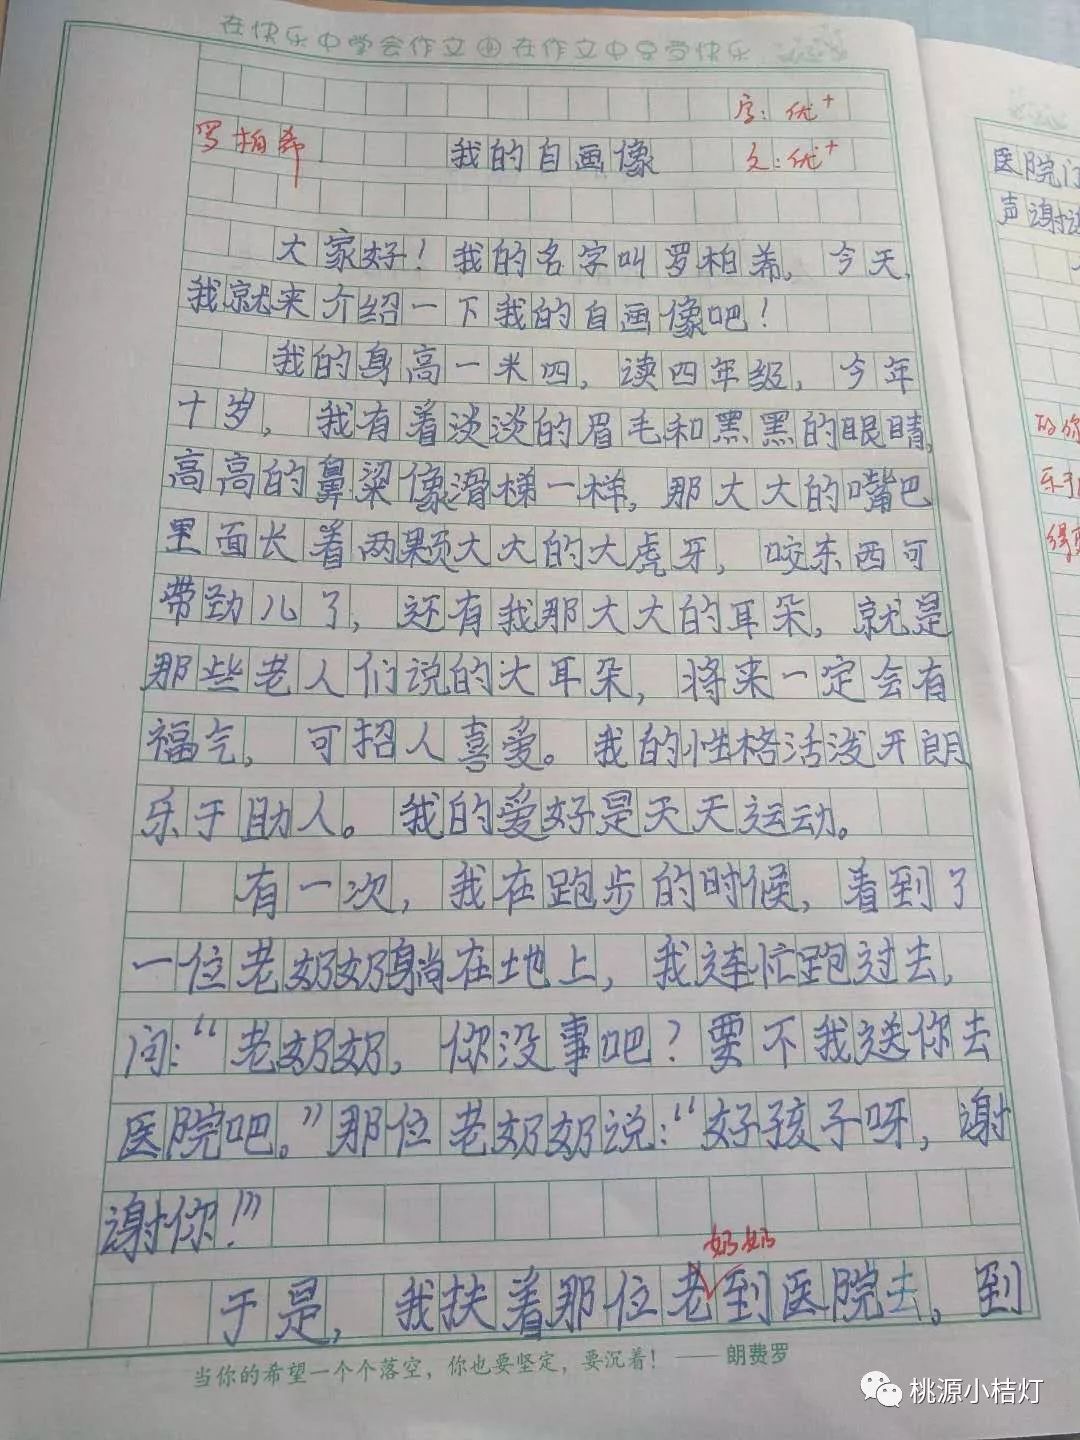 在快乐中学会作文 在作文中享受快乐
字：优+
罗柏希
我的自画像
文：优+
大家好！我的名字叫罗柏希，今天，
我就来介绍一下我的自画像吧！
我的身高一米四，读四年级，今年
十岁，我有着淡淡的眉毛和黑黑的眼睛，
高高的鼻梁像滑梯一样，那大大的嘴巴
里面长着两颗大大的大虎牙，咬东西可
带劲儿了，还有我那大大的耳朵，就是
那些老人们说的大耳朵，将来一定会有
福气，可招人喜爱。我的性格活泼开朗
乐于助人。我的爱好是天天运动。
有一次，我在跑步的时候，看到了
一位老奶奶躺在地上，我连忙跑过去，
问：“老奶奶，你没事吧？要不我送你去
医院吧。”那位老奶奶说：“好孩子呀，谢
谢你！”
奶奶
于是，我扶着那位老到医院去，到
当你的希望一个个落空，你也要坚定，要沉着！——朗费罗
医院门
声谢谢
的你
乐于
桃源小桔灯